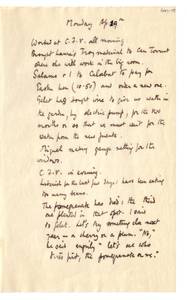 Monday Ap 29th
Worked at C.I.V. all morning
Brought Lanning's Troy material to Can Torrent
where she will work in the big room.
Salome & I to Calobar to pay for
broken lens (10.50) and order a new one.
Pilot had bought wire to give us water in
the garden, by electric pump; for the
months or so that we must wait for the
water from the new pueblo.
Miguel making gauze netting for the
windows.
C.I.V. in evening.
for the last few days: have been eating
too many beans.
The pomegranate has died: the third
one planted in that spot. I said
to Pilot: let's try something else next
year – a cherry or a plum. "No,"
he said angrily "let's see who
the pomegranate or me."